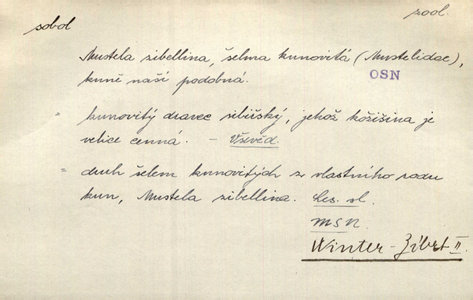 sobol
zool.
Mustela zibellina, šelma kunovitá (Mustelidae),
kuně naší podobná.
OSN
" kunovitý dravec sibiřský, jehož kožišina je
velice cenná. – Vševěd.
= druh šelem kunovitých z vlastního rodu
kun, Mustela zibellina. Les. sl.
MSN
Winter - Zíbrt II.